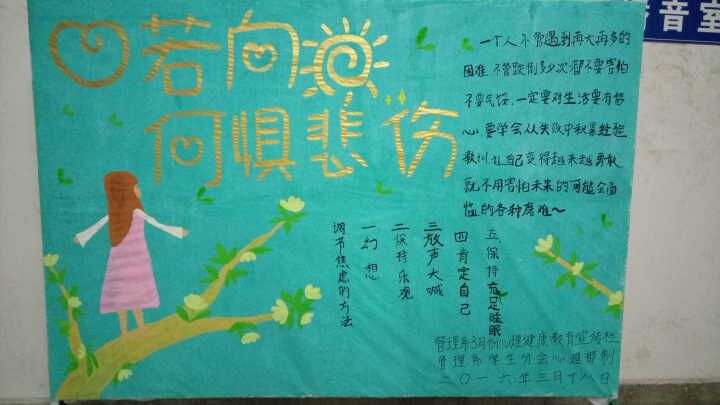 音室
心若向阳
何惧悲伤
一个人不管遇到再大再多的
困难,不管跌倒多少次,都不要害怕
不要气馁,一定要对生活要有信
心,要学会从失败中积累经验
教训,让自己变得越来越勇敢
就不用害怕未来的可能会面
临的各种磨难~
调节焦虑的方法
一幻想
二保持乐观
三放声大喊
四肯定自己
五保持充足睡眠
管理系3月份心理健康教育宣传栏
管理系学生分会心理部制
二〇一六年三月十八日